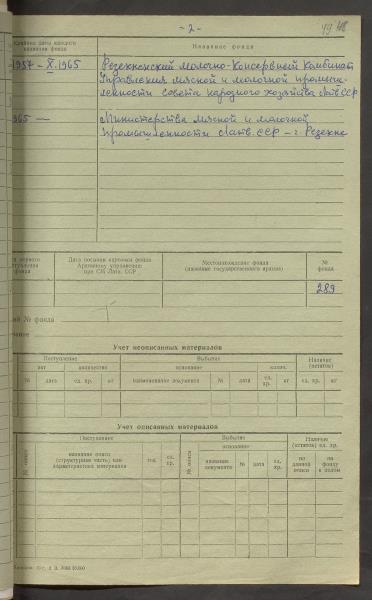 - 2 -
Крайние даты каждого
названия фонда
Название фонда
1957 - X.1965
Резекненский молочно-консервный комбинат
Управления мясной и молочной промыш-
ленности Совета народного хозяйства Латв ССР
1965 —
Министерства мясной и молочной
промышленности Латв. ССР – г. Резекне
первого
поступления
фонда
Дата посылки карточки фонда
Архивному управлению
при СМ Латв. ССР
Местонахождение фонда
(название государственного архива)
№
фонда
289
№ фонда
Учет неописанных материалов
Поступление
Выбытие
Наличие
(остаток)
акт
количество
основание
колич.
№
дата
ед. хр.
кг
наименование документа
№
дата
ед.
хр.
кг
ед. хр.
кг
Учет описанных материалов
№ описи
Поступление
Выбытие
Наличие
(остаток) ед. хр.
название описи
(структурная часть) или
характеристика материалов
год
ед.
хр.
№ описи
основание
название
документа
№
дата
ед.
хр.
по
данной
описи
по
фонду
в целом